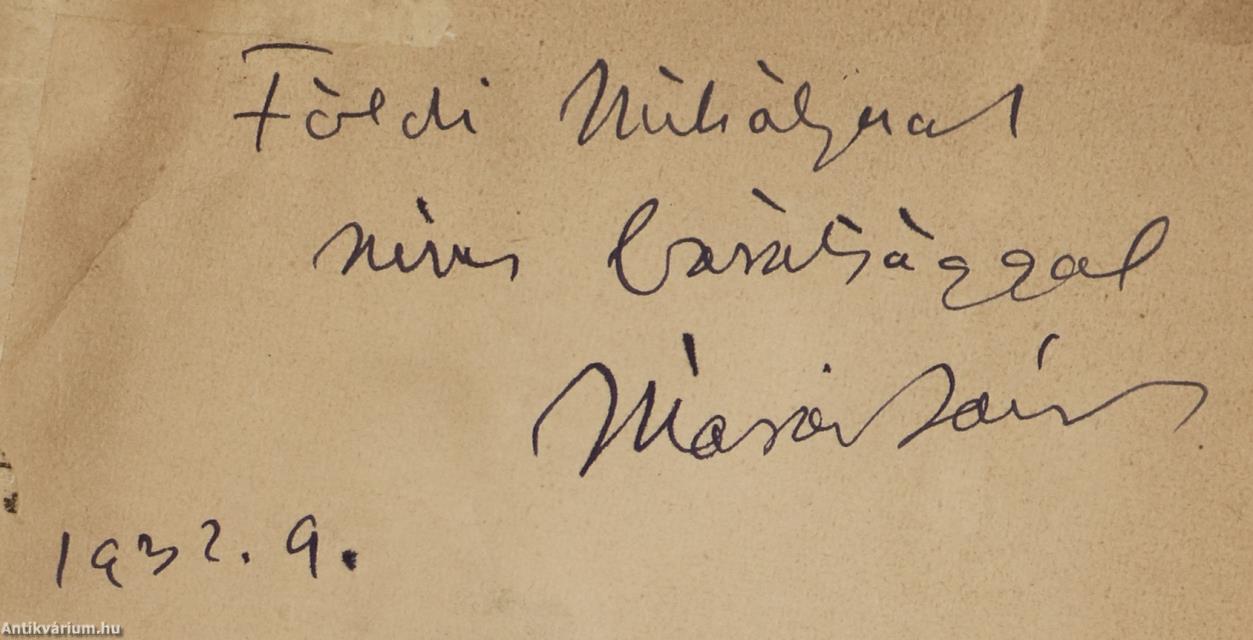 Földi Mihálynak
szíves barátsággal
Márai Sándor
1932. 9.
Antikvárium.hu